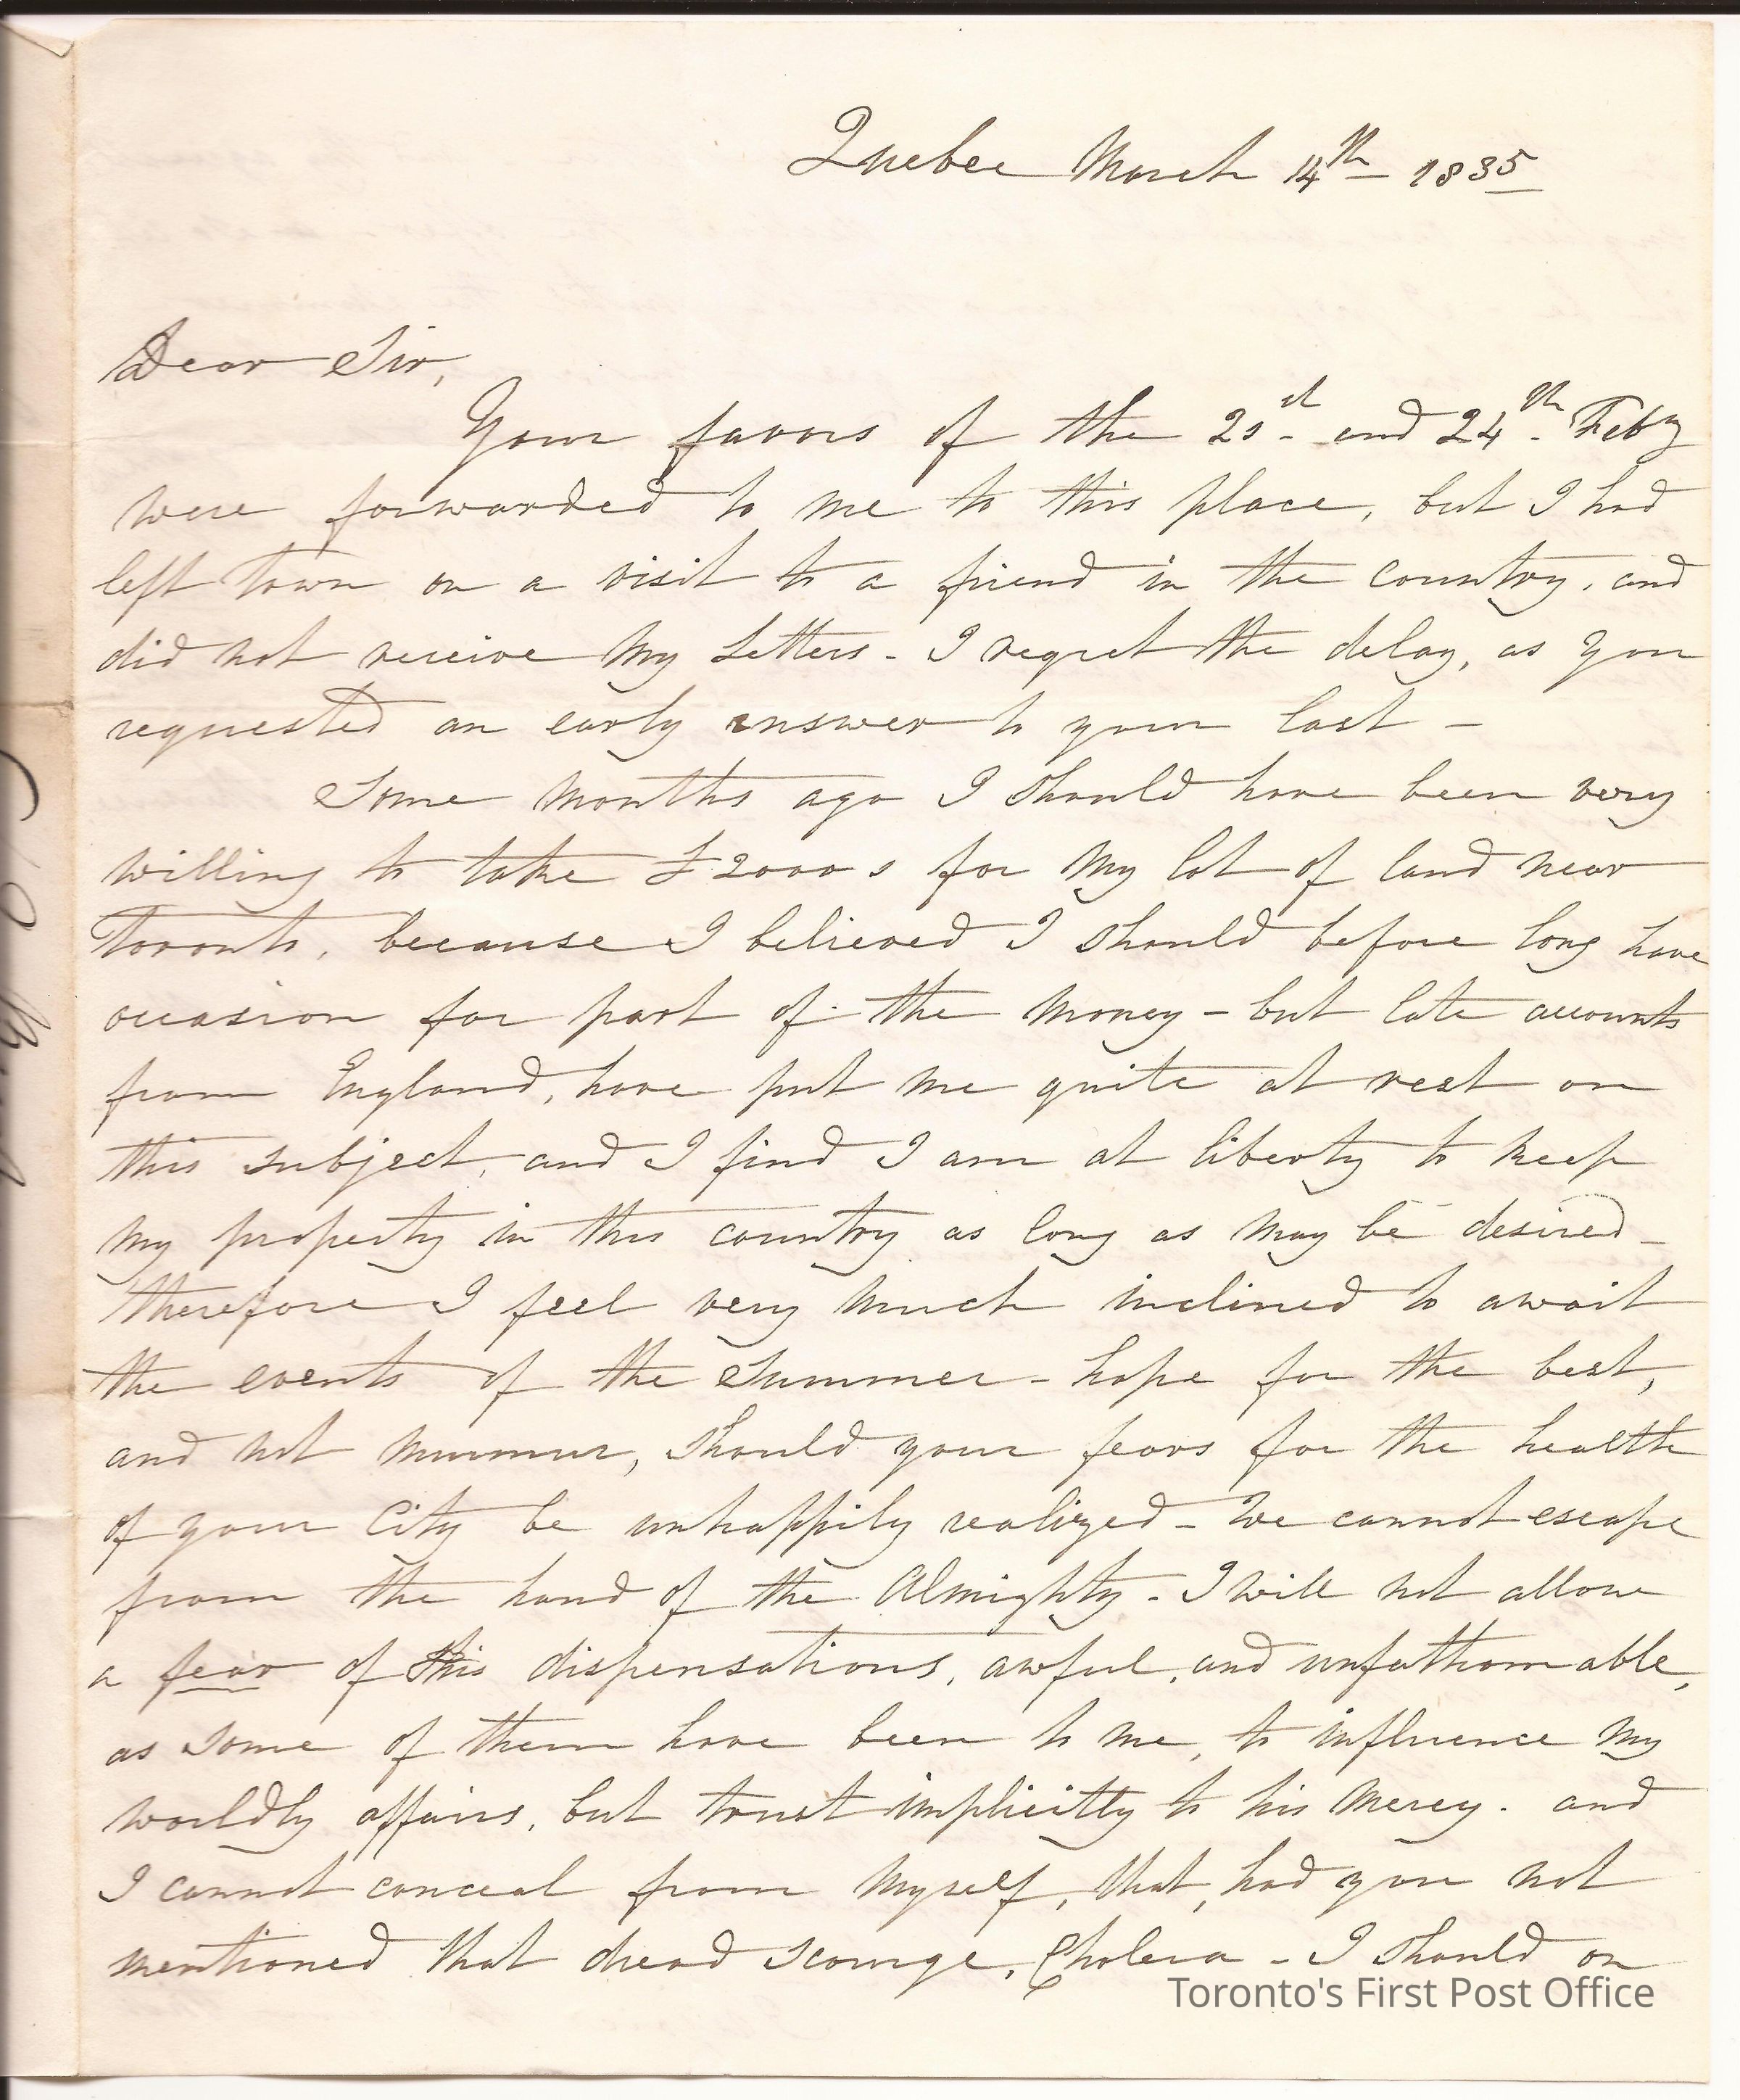 Quebec March 14th 1835
Dear Sir,
Your favors of the 21st and 24th Feby
were forwarded to me to this place, but I had
left Town on a visit to a friend in the Country, and
did not receive my Letters - I regret the delay, as you
requested an early answer to your last -
Some months ago I should have been very
willing to take £2000 for my lot of land near
Toronto, because I believed I should before long have
occasion for part of the money - but late accounts
from England, have put me quite at rest on
this subject, and I find I am at liberty to keep
my property in this country as long as may be desired -
therefore I feel very much inclined to await
the events of the Summer - hope for the best,
and not murmur, should your fears for the health
of your City be unhappily realized - We cannot escape
from the hand of the Almighty - I will not allow
a fear of His dispensations, awful, and unfathomable,
as some of them have been to me, to influence my
worldly affairs, but trust implicitly to his Mercy. and
I cannot conceal from myself, that, had you not
mentioned that dread scourge, Cholera - I should on
Toronto's First Post Office